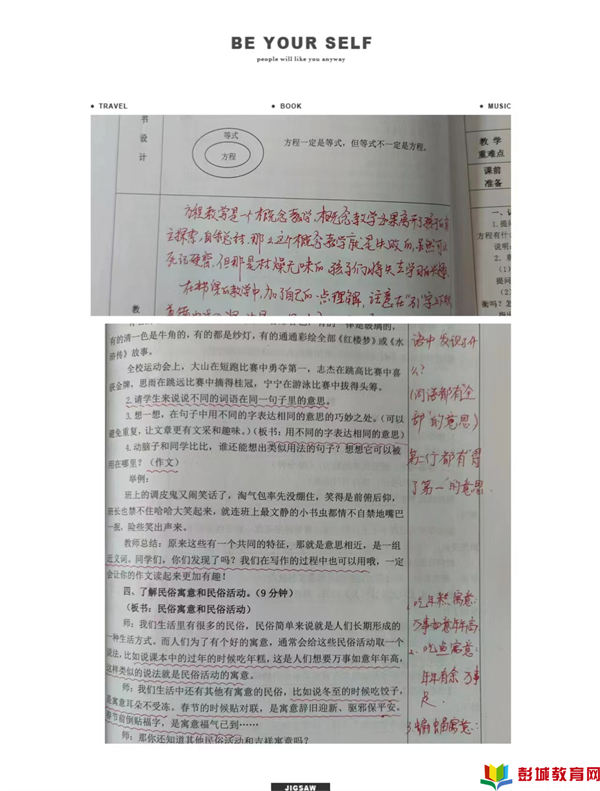 BE YOUR SELF
people will like you anyway
TRAVEL
BOOK
MUSIC
书
设
计
等式
方程
方程一定是等式，但等式不一定是方程。
教学
重难点
课前
准备
方程教学是一个概念教学，概念教学如果离开了孩子的自
主探索，自我总结，那么这个概念教学就是失败的，虽然可以
死记硬背，但那是枯燥无味的，孩子们将失去学习的兴趣。
教
有的清一色是牛角的，有的都是纱灯，有的通通彩绘全部《红楼梦》或《水
浒传》故事。
全校运动会上，大山在短跑比赛中勇夺第一，志杰在跳高比赛中喜
获金牌，思雨在跳远比赛中摘得桂冠，宁宁在游泳比赛中拔得头筹。
2.请学生来说说不同的词语在同一句子里的意思。
3.想一想，在句子中用不同的字表达相同的意思的巧妙之处。（可以
避免重复，让文章更有文采和趣味。）（板书：用不同的字表达相同的意思）
4.动脑子和同学比比，谁还能想出类似用法的句子？想想它可以被
用在哪里？（作文）
举例：
班上的调皮鬼又闹笑话了，淘气包率先没绷住，笑得是前俯后仰，
班长也禁不住哈哈大笑起来，就连班上最文静的小书虫都情不自禁地嘴巴
一抿，险些笑出声来。
教师总结：原来这些有一个共同的特征，那就是意思相近，是一组
近义词。同学们，你们发现了吗？我们在写作的过程中也可以用哦，一定
会让你的作文读起来更加有趣！
四、了解民俗寓意和民俗活动。（9 分钟）
（板书：民俗寓意和民俗活动）
师：我们生活里有很多的民俗，民俗简单来说就是人们长期形成的
一种生活方式。而人们为了有个好的寓意，通常会给这些民俗活动取一个
说法，比如说课本中的过年的时候吃年糕，这是人们想要万事如意年年高，
这样类似的说法就是民俗活动的寓意。
师：我们生活中还有其他有寓意的民俗，比如说冬至的时候吃饺子，
是寓意耳朵不受冻。春节的时候贴对联，是寓意辞旧迎新、驱邪保平安。
春节前倒贴福字，是寓意福气已到……
师：那你还知道其他民俗活动和吉祥寓意吗？
语中发现了什
么？
（词语都有“全
部”的意思）
第二行都有“得
了第一”的意思
1.吃年糕寓意：
万事如意年年高
2.吃鱼寓意：
年年有余
3.蝙蝠寓意：
JIGSAW
彭城教育网